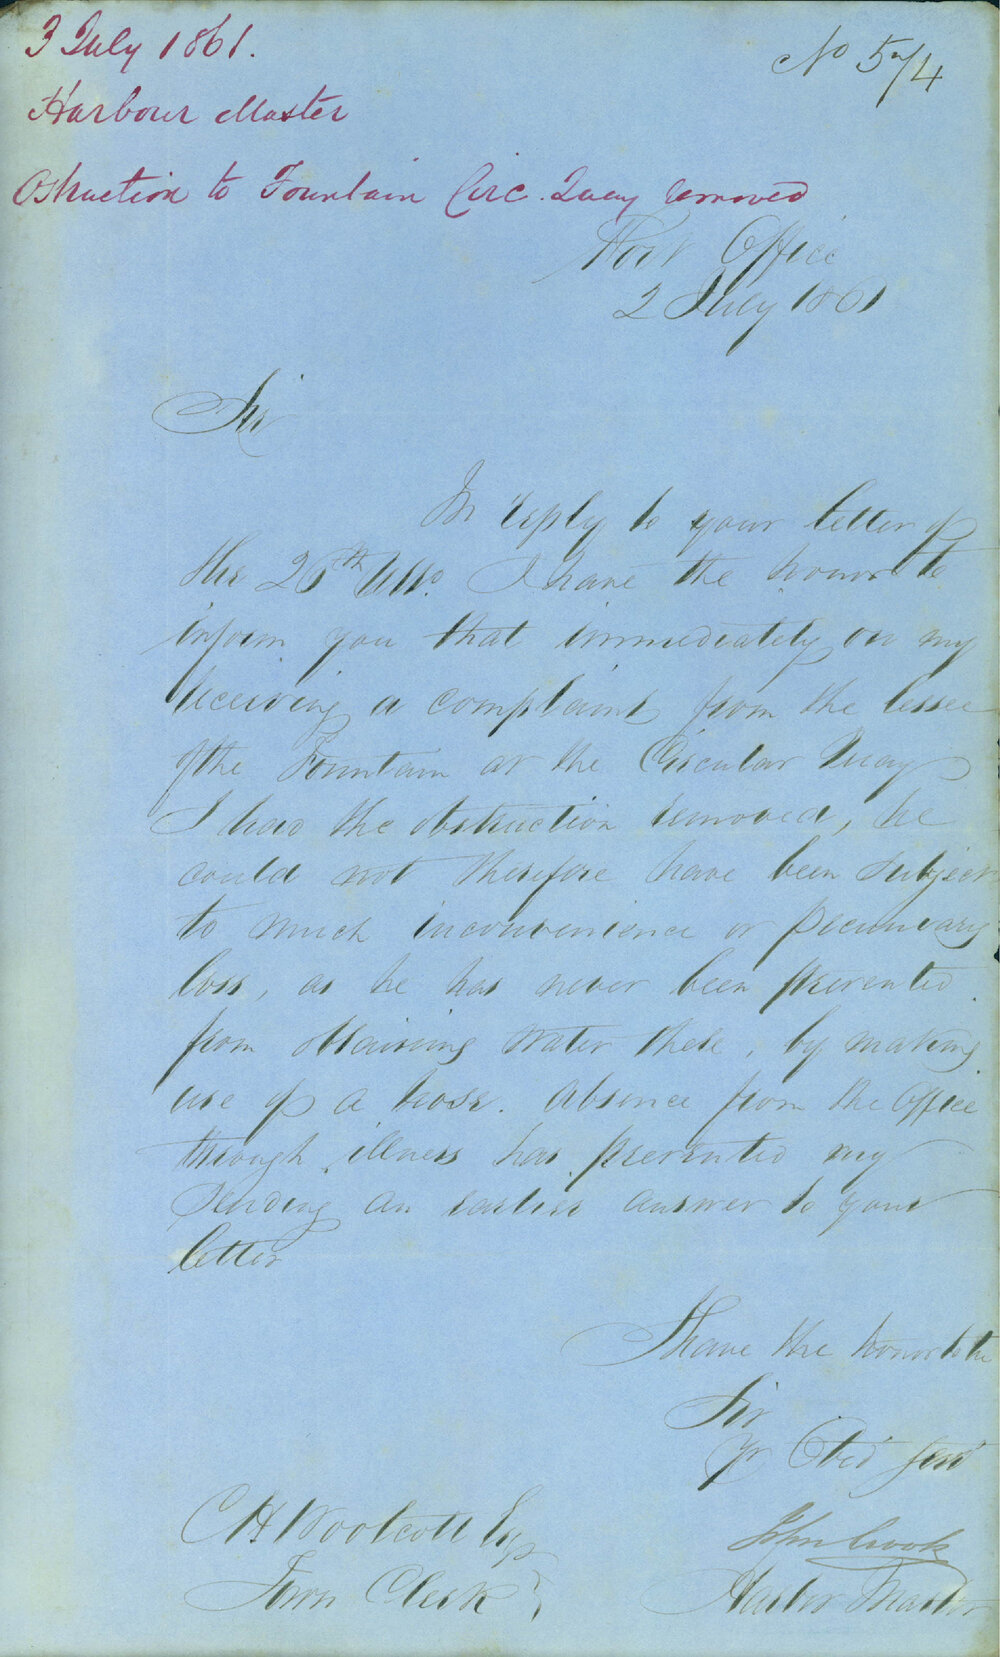 3 July 1861.
No 574
Harbour Master
Ostruction to Fountain Circ. Quay removed
Port Office
2 July 1861
Sir
In reply to your letter of
the 26th Ulto. I have the honor to
inform you that immediately on my
receiving a complaint from the lessee
of the Fountain at the Circular Quay
I had the obstruction removed, he
could not therefore have been subject
to much inconvenience or pecuniary
loss, as he has never been prevented
from obtaining water there, by making
use of a hose. Absence from the Office
through illness has prevented my
sending an earlier answer to your
letter
I have the honor to be
Sir
Yr Obed Servt
John Crook
Harbor Master
C H Woolcott Esq
Town Clerk